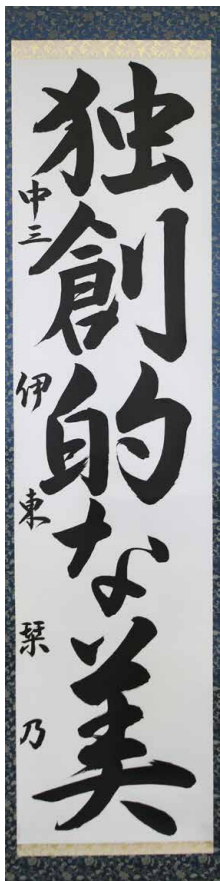 独創的な美
中三 伊東栞乃